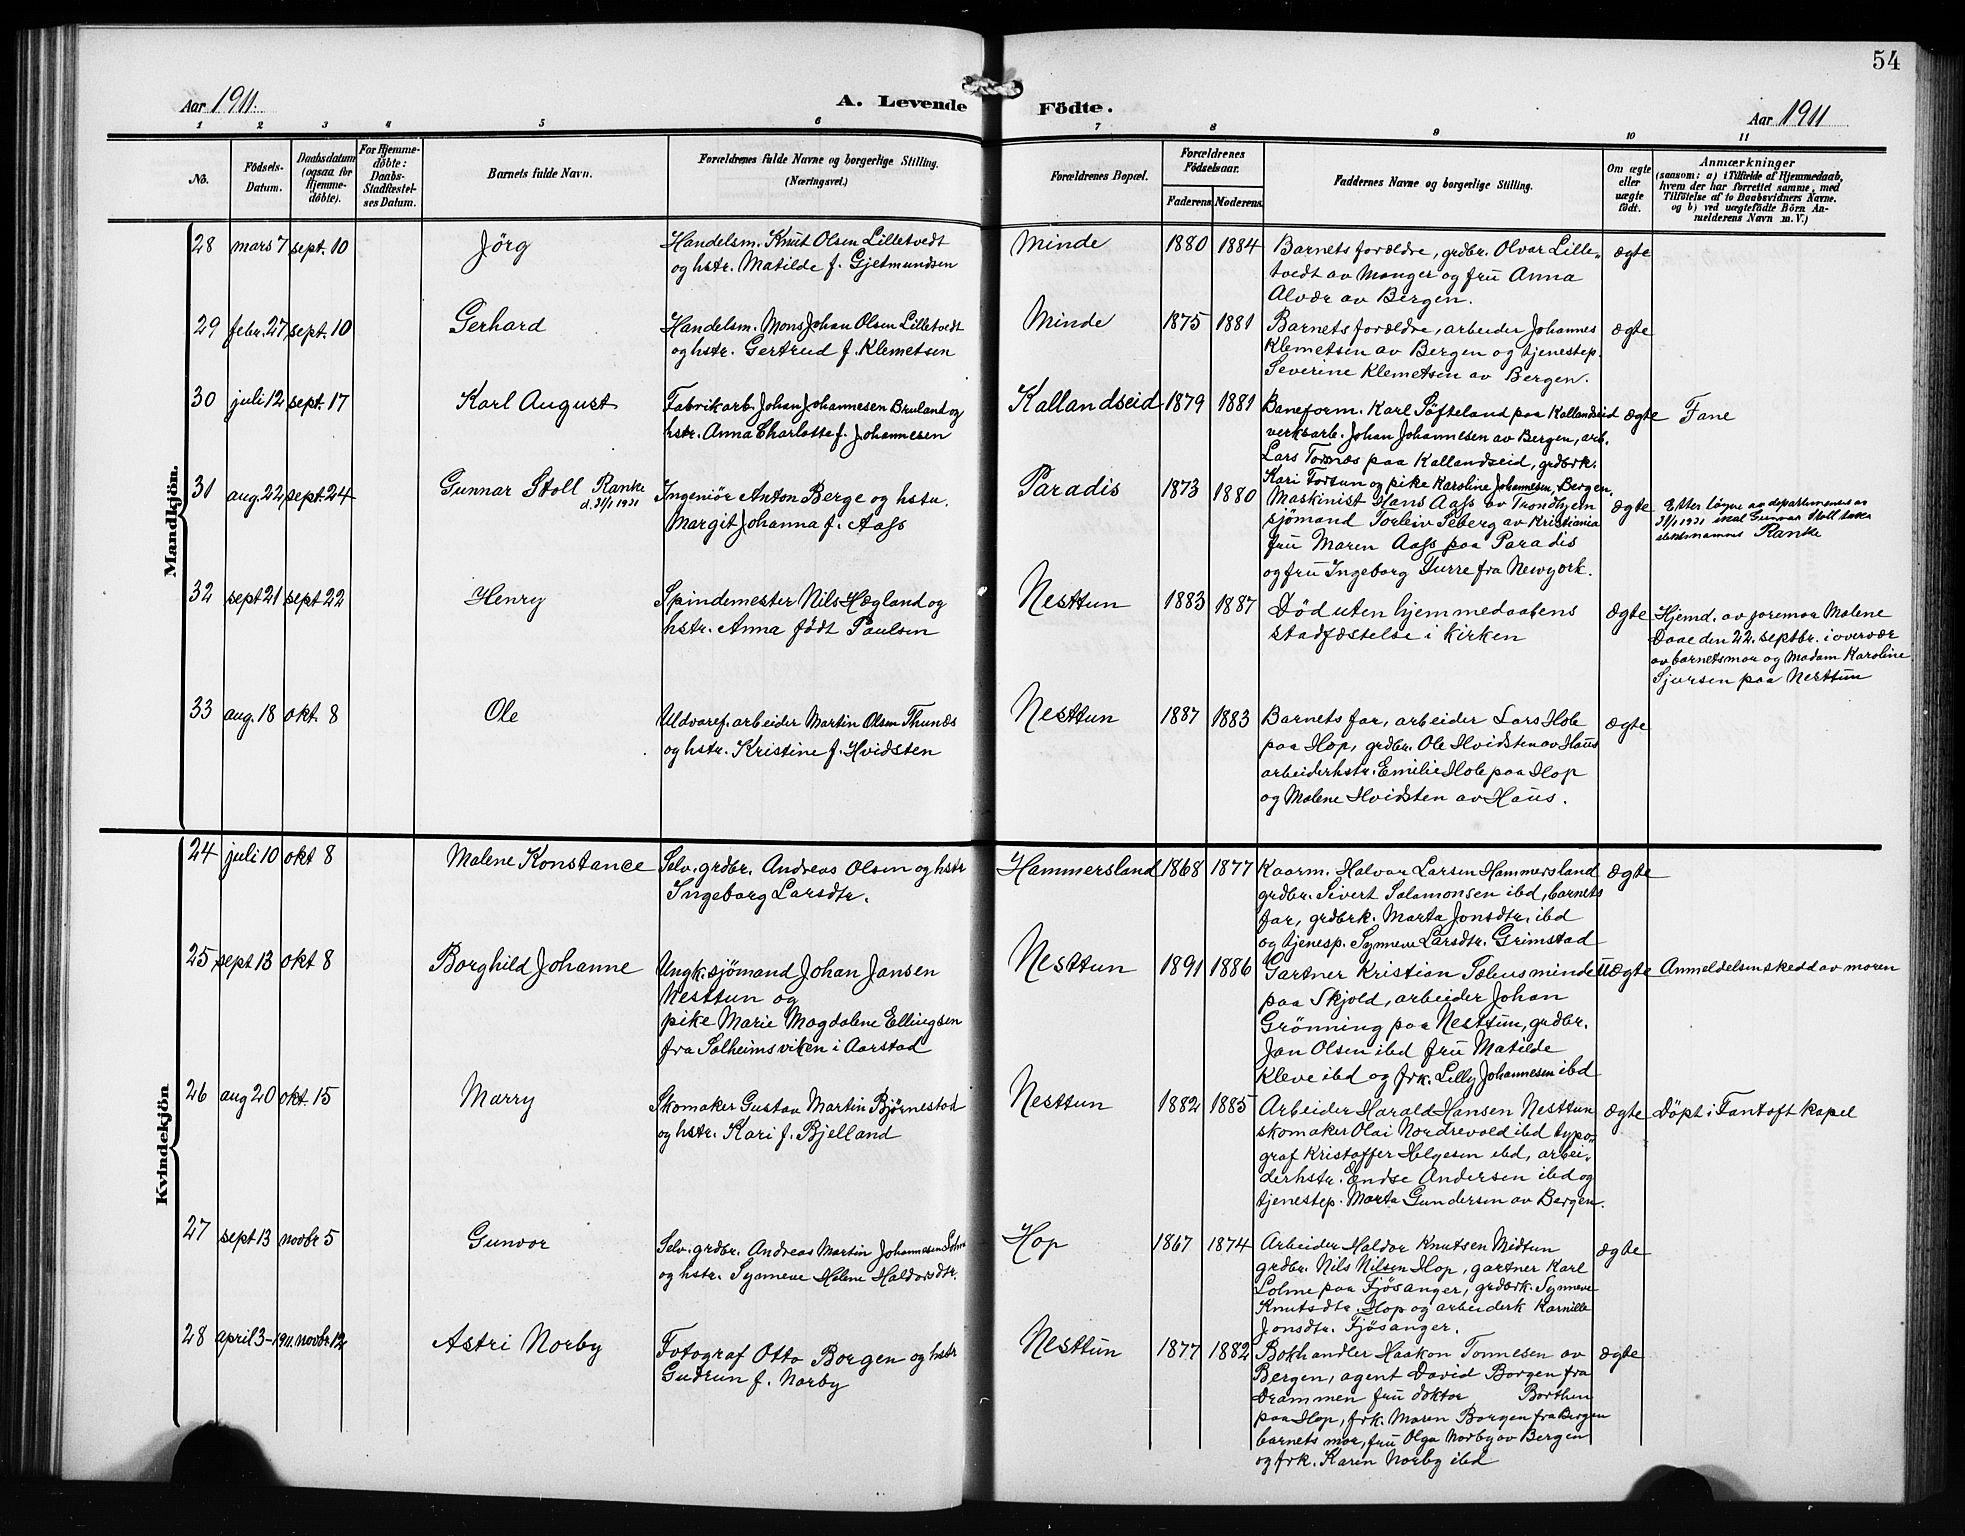 54
Aar 1911.
A. Levende Födte.
Aar 1911
1 2 3 4 5 6 7 8 9 10 11
No.
Födsels-
Datum.
Daabsdatum
(ogsaa for
Hjemme-
döbte).
For Hjemme-
döbte:
Daabs-
Stadfæstel-
ses Datum.
Barnets fulde Navn.
Forældrenes fulde Navne og borgerlige Stilling.
(Næringsvei.)
Forældrenes Bopæl.
Forældrenes
Födselsaar.
Faderens.
Moderens.
Faddernes Navne og borgerlige Stilling.
Om ægte
eller
uægte
födt.
Anmærkninger
(saasom: a) i Tilfælde af Hjemmedaab,
hvem der har forrettet samme, med
Tilföielse af to Daabsvidners Navne.
og b) ved uægtefødte Börn An-
melderens Navn m. V.)
Mandkjön.
28 mars 7 sept. 10 Jörg
Handelsm. Knut Olsen Lilletvedt
og hstr. Matilde f. Gjetmundsen
Minde 1880 1884
Barnets forældre, grdbr. Olvar Lille-
tvedt av Manger og fru Anna
Alvær av Bergen.
ægte
29 febr. 27 sept. 10 Gerhard
Handelsm. Mons Johan Olsen Lilletvedt
og hstr. Gertrud f. Klemetsen
Minde 1875 1881
Barnets forældre, arbeider Johannes
Klemetsen av Bergen og tjenestep.
Severine Klemetsen av Bergen.
ægte
30 juli 12 sept. 17 Karl August
Fabrikarb. Johan Johannesen Bruland og
hstr. Anna Charlotte f. Johannesen
Kallandseid 1879 1881
Baneform. Karl Söfteland paa Kallandseid
verksarb. Johan Johannesen av Bergen, arb.
Lars Tornæs paa Kallandseid, grdbrk.
Kari Fortun og pike Karoline Johannesen, Bergen.
ægte
Fane
31 aug. 22 sept. 24 Gunnar Stoll Ranke
d. 31/1 1931
Ingeniör Anton Berge og hstr.
Margit Johanna f. Aass
Paradis 1873 1880
Maskinist Hans Aass av Trondhjem
sjömand Torleiv Seberg av Kristiania
fru Maren Aass paa Paradis
og fru Ingeborg Furre fra Newyork.
ægte
Efter av departementet av
31/1 1931 skal Gunnar Stoll
Ranke
32 sept 21 sept 22 Henry
Spindemester Nils Hægland og
hstr. Anna født Paulsen
Nesttun 1883 1887
Död uten hjemmedaabens
stadfæstelse i kirken
ægte
Hjemd. av jormor Malene
Daae den 22. septbr. i overvær
av barnets mor og Madam Karoline
Sjursen paa Nesttun
33 aug. 18 okt. 8 Ole
Uldvaref. arbeider Martin Olsen Thunæs
og hstr. Kristine f. Hvidsten
Nesttun 1887 1883
Barnets far, arbeider Lars Hole
paa Hop, grdbr. Ole Hvidsten av Haus
arbeiderhstr. Emilie Hole paa Hop
og Malene Hvidsten av Haus.
ægte
Kvindekjön
24 juli 10 okt 8 Malene Konstance
Selv. grdbr. Andreas Olsen og hstr
Ingeborg Larsdtr.
Hammersland 1868 1877
Kaarm. Halvor Larsen Hammersland
grdbr. Sivert Salamonsen ibd, barnets
far, grdbrk. Marta Jonsdtr. ibd
og tjenesp. Synneve Larsdtr. Grimstad
ægte
25 sept 13 okt 8 Borghild Johanne
Ungk. sjömand Johan Jansen
Nesttun og
pike Marie Magdalene Ellingsen
fra Solheimsviken i Aarstad
Nesttun 1891 1886
Gartner Kristian Solensminde
paa Skjold, arbeider Johan
Grönning paa Nesttun, grdbr.
Jan Olsen ibd fru Matilde
Kleve ibd og frk. Lilly Johannesen ibd
Uægte
Anmeldelsen skedd av moren
26 aug 20 okt. 15 Marry
Skomaker Gustav Martin Bjørnestad
og hstr. Kari f. Bjelland
Nesttun 1882 1885
Arbeider Harald Hansen Nesttun
skomaker Olai Nordrevold ibd typo-
graf Kristoffer Helgesen ibd, arbei-
derhstr. Endse Andersen ibd og
tjenestep. Marta Gundersen av Bergen.
ægte
Döpt i Fantoft kapel
27 sept 13 novbr 5 Gunvor
Selv. grdbr. Andreas Martin Johannesen
og hstr. Synneve Helene Haldorsdtr.
Hop 1867 1874
Arbeider Haldor Knutsen Midtun
grdbr. Nils Nilsen Hop, gartner Karl
Lolme paa Fjösanger, grdbrk. Synneve
Knutsdtr. Hop og arbeiderk Kornille
Jonsdtr. Fjösanger.
ægte
28 april 3-1911 novbr. 12 Astri Norby
Fotograf Otto Borgen og hstr
Gudrun f. Norby
Nesttun 1877 1882
Bokhandler Haakon Tonnesen av
Bergen, agent David Borgen fra
Drammen fru doktor Borthen
paa Hop, frk. Maren Borgen fra Bergen
barnets mor, fru Olga Norby av Bergen
og frk. Karen Norby ibd
ægte